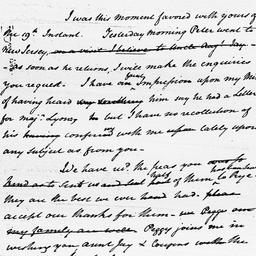 I was this Moment favored with yours of
the 19th Instant. Yesterday Morning Peter went to
New Jersey, on a visit I believe to Uncle
as soon as he returns, I will make the enquiries
you request - I have an Impression upon my Mi
of having heard him say he had a Letter
for Maj. Lyonel but I have no recollection of
his having conferred with me upon lately upon
any subject as from you -
We have recd. the peas you
send us of them to Rye -
they are the best we ever had.
accept our thanks for them - we
my family are well. Peggy joins me in
wishing you aunt Jay & Cousins